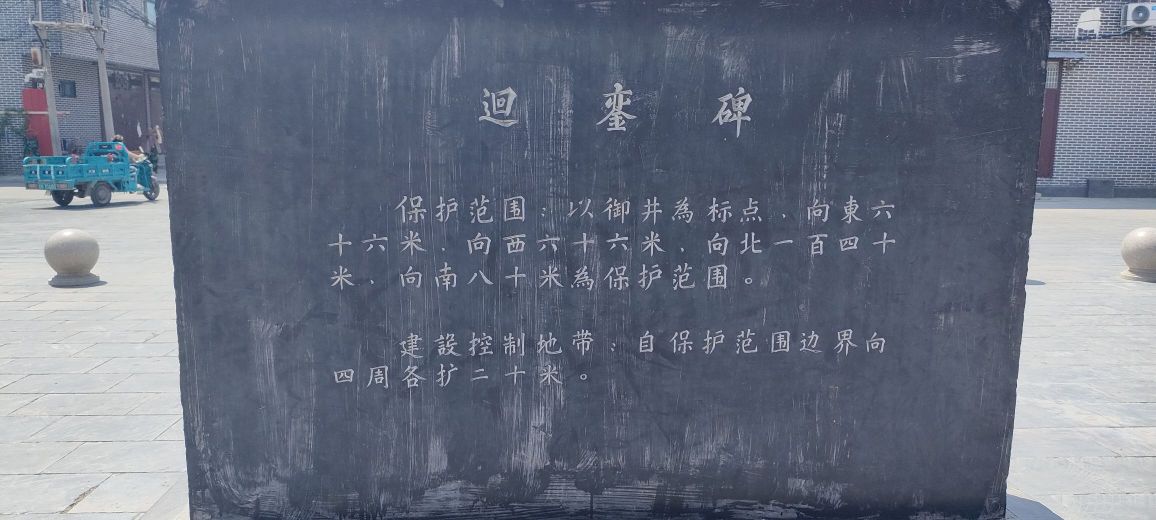 迴鑾碑
保护范围：以御井為标点、向東六
十六米、向西六十六米、向北一百四十
米、向南八十米為保护范围。
建設控制地带：自保护范围边界向
四周各扩二十米。